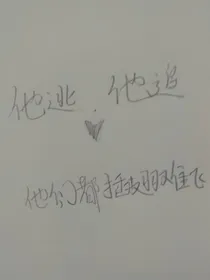 他逃、他追
他们都插翅难飞